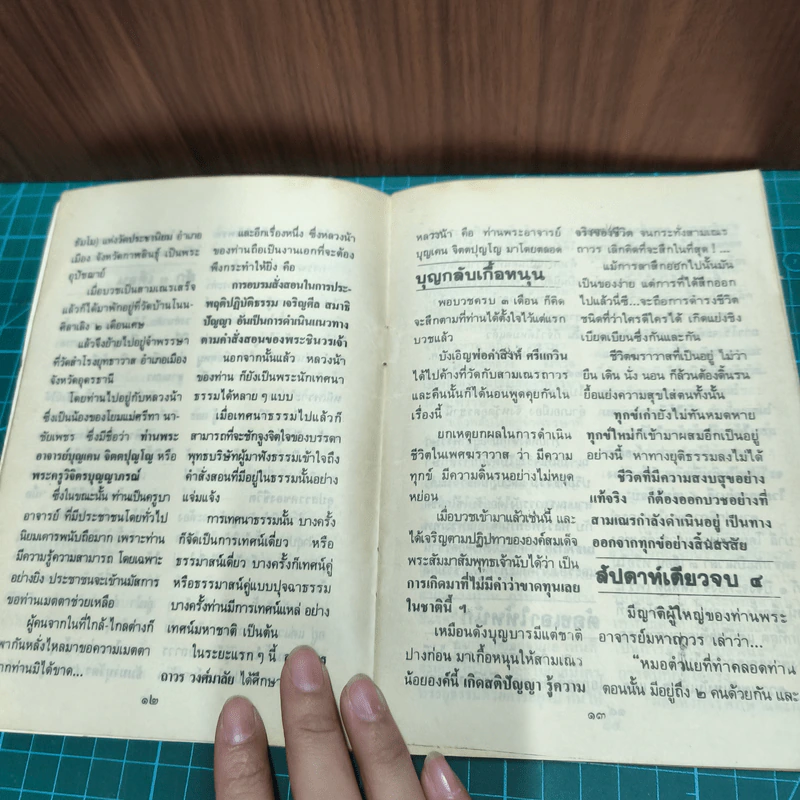 ธัมโม) แห่งวัดประชานิยม อำเภอ
เมือง จังหวัดกาฬสินธุ์ เป็นพระ
อุปัชฌาย์
เมื่อบวชเป็นสามเณรเสร็จ
แล้วก็ได้มาพักอยู่ที่วัดบ้านโนน
ศิลาเลิง ๒ เดือนเศษ
แล้วจึงย้ายไปอยู่จำพรรษา
ที่วัดสำโรงยุทธาวาส อำเภอเมือง
จังหวัดอุดรธานี
โดยท่านไปอยู่กับหลวงน้า
ซึ่งเป็นน้องของโยมแม่ศรีทา นา-
ชัยเพชร ซึ่งมีชื่อว่า ท่านพระ
อาจารย์บุญเคน จิตตปุญโญ หรือ
พระครูวิจิตรบุญญาภรณ์
ซึ่งในขณะนั้น ท่านเป็นครูบา
อาจารย์ ที่มีประชาชนโดยทั่วไป
นิยมเคารพนับถือมาก เพราะท่าน
มีความรู้ความสามารถ โดยเฉพาะ
อย่างยิ่ง ประชาชนจะเข้านมัสการ
ขอท่านเมตตาช่วยเหลือ
ผู้คนจากในที่ใกล้-ไกลต่างก็
พากันหลั่งไหลมาขอความเมตตา
จากท่านมิได้ขาด...
และอีกเรื่องหนึ่ง ซึ่งหลวงน้า
ของท่านถือเป็นงานเอกที่จะต้อง
พึงกระทำให้ยิ่ง คือ
การอบรมสั่งสอนในการประ-
พฤติปฏิบัติธรรม เจริญศีล สมาธิ
ปัญญา อันเป็นการดำเนินแนวทาง
ตามคำสั่งสอนของพระชินวรเจ้า
นอกจากนั้นแล้ว หลวงน้า
ของท่าน ก็ยังเป็นพระนักเทศนา
ธรรมได้หลาย ๆ แบบ
เมื่อเทศนาธรรมไปแล้วก็
สามารถที่จะชักจูงจิตใจของบรรดา
พุทธบริษัทผู้มาฟังธรรมเข้าใจถึง
คำสั่งสอนที่มีอยู่ในธรรมนั้นอย่าง
แจ่มแจ้ง
การเทศนาธรรมนั้น บางครั้ง
ก็จัดเป็นการเทศน์เดี่ยว หรือ
ธรรมาสน์เดี่ยว บางครั้งก็เทศน์คู่
หรือธรรมาสน์คู่แบบปุจฉาธรรม
บางครั้งท่านมีการเทศน์แหล่ อย่าง
เทศน์มหาชาติ เป็นต้น
ในระยะแรก ๆ นี้
ถาวร วงศ์มาลัย ได้ศึกษา
๑๒
หลวงน้า คือ ท่านพระอาจารย์
บุญเคน จิตตปุญโญ มาโดยตลอด
บุญกลับเกื้อหนุน
พอบวชครบ ๓ เดือน ก็คิด
จะสึกตามที่ท่านได้ตั้งใจไว้แต่แรก
บวชแล้ว
บังเอิญพ่อคำสิงห์ ศรีแกวิน
ได้ไปค้างที่วัดกับสามเณรถาวร
และคืนนั้นก็ได้นอนพูดคุยกันใน
เรื่องนี้
ยกเหตุยกผลในการดำเนิน
ชีวิตในเพศฆราวาส ว่า มีความ
ทุกข์ มีความดิ้นรนอย่างไม่หยุด
หย่อน
เมื่อบวชเข้ามาแล้วเช่นนี้ และ
ได้เจริญตามปฏิปทาขององค์สมเด็จ
พระสัมมาสัมพุทธเจ้านับได้ว่า เป็น
การเกิดมาที่ไม่มีคำว่าขาดทุนเลย
ในชาตินี้ ฯ
เหมือนดังบุญบารมีแต่ชาติ
ปางก่อน มาเกื้อหนุนให้สามเณร
น้อยองค์นี้ เกิดสติปัญญา รู้ความ
จริงของชีวิต จนกระทั่งสามเณร
ถาวร เลิกคิดที่จะสึกในที่สุด !...
แม้การลาสึกออกไปนั้นมัน
เป็นของง่าย แต่การที่ได้สึกออก
ไปแล้วนี่ซี...จะถือการดำรงชีวิต
ชนิดที่ว่าใครดีใครได้ เกิดแย่งชิง
เบียดเบียนซึ่งกันและกัน
ชีวิตฆราวาสที่เป็นอยู่ ไม่ว่า
ยืน เดิน นั่ง นอน ก็ล้วนต้องดิ้นรน
ยื้อแย่งความสุขใส่ตนทั้งนั้น
ทุกข์เก่ายังไม่ทันหมดหาย
ทุกข์ใหม่ก็เข้ามาผสมอีกเป็นอยู่
อย่างนี้ หาทางยุติธรรมลงไม่ได้
ชีวิตที่มีความสงบสุขอย่าง
แท้จริง ก็ต้องออกบวชอย่างที่
สามเณรกำลังดำเนินอยู่ เป็นทาง
ออกจากทุกข์อย่างสิ้นสงสัย
สัปดาห์เดียวจบ ๔
มีญาติผู้ใหญ่ของท่านพระ
อาจารย์มหาถาวร เล่าว่า...
“หมอตำแยที่ทำคลอดท่าน
ตอนนั้น มีอยู่ถึง ๒ คนด้วยกัน และ
๑๓